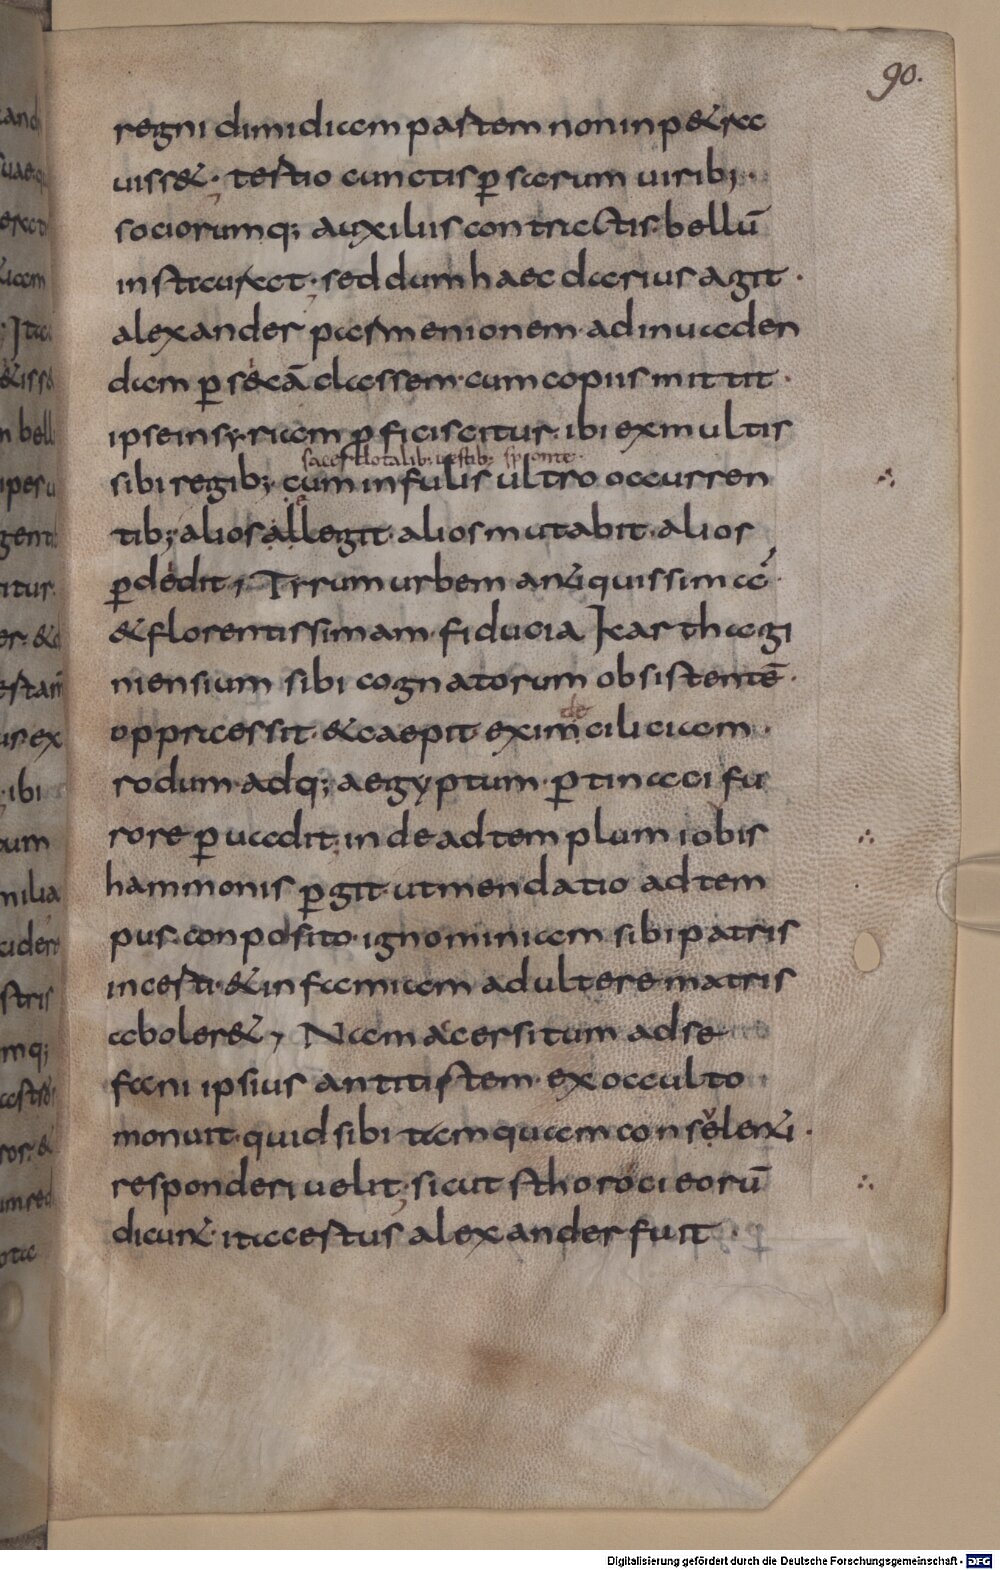 90.
regni dimidiam partem non inpetra
uisset; tertio cunctis ꝑsarum uirib;
sociorumq; auxiliis contractis bellū
instaurat; sed dum haec darius agit ·
alexander parmenionem · ad inuaden
dam ꝑsicā classem · cum copiis mittit ·
ipse in syriam proficiscitur · ibi ex multis
sacerdotalib; uestib; sponte ·
sibi regib; cum infulis ultro occurren
tib; alios allegit · alios mutabit · alios
ꝑdedit; Tyrum urbem antiquissimā
& florentissimam · fiducia karthagi
niensium sibi cognatorum obsistentē ·
de
oppressit · & caepit exim ciliciam ·
rodum · adq; aegyptum · ꝑtinaci fu
rore ꝑuadit; inde ad templum iobis
hammonis ꝑgit · ut mendatio ad tem
pus conposito · ignominiam sibi patris
incesti · & infamiam adultere matris
aboler& ; Nam acersitum ad se
fani ipsius antitistem · ex occulto
monuit · quid sibi tamquam conselenti ·
responderi uelit; sicut sthoroci eorū
dicunt · ita cestus alexander fuit ·
Digitalisierung gefördert durch die Deutsche Forschungsgemeinschaft - DFG